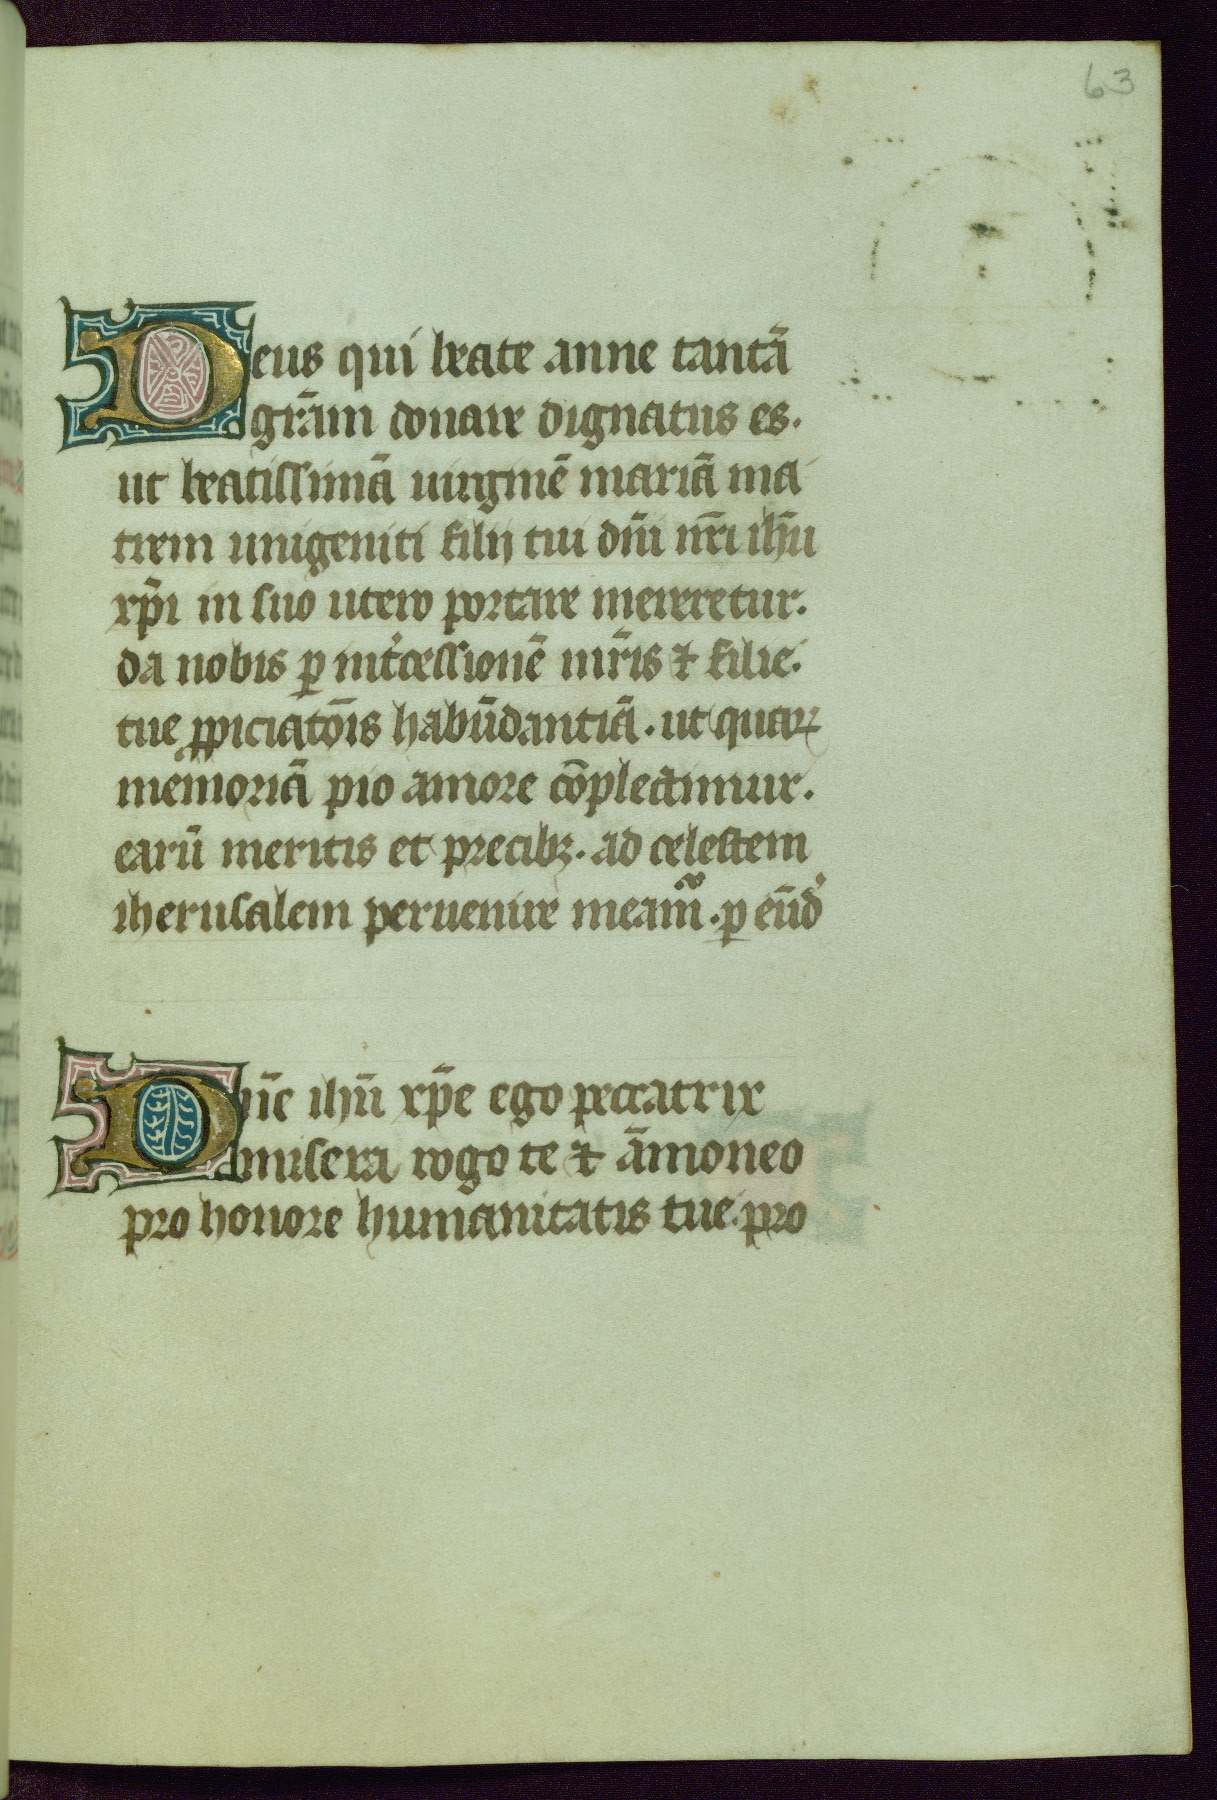 63
Deus qui beate anne tantā
gr̄am donare dignatus es.
ut beatissimā uirginē mariā ma
trem unigeniti filij tui dn̄i nr̄i ih̄u
xp̄i in suo utero portare mereretur.
da nobis ꝑ int̓cessionē mr̄is ⁊ filie.
tue ꝓpiciatōis habūdantiā. ut quaꝝ
memoriā pio amore cōplectimur.
earū meritis et precibꝫ. ad celestem
iherusalem peruenire meam̄. ꝑ eūd̓
Dn̄e ih̄u xp̄e ego peccatrix
misera rogo te ⁊ āmoneo
pro honore humanitatis tue. pro